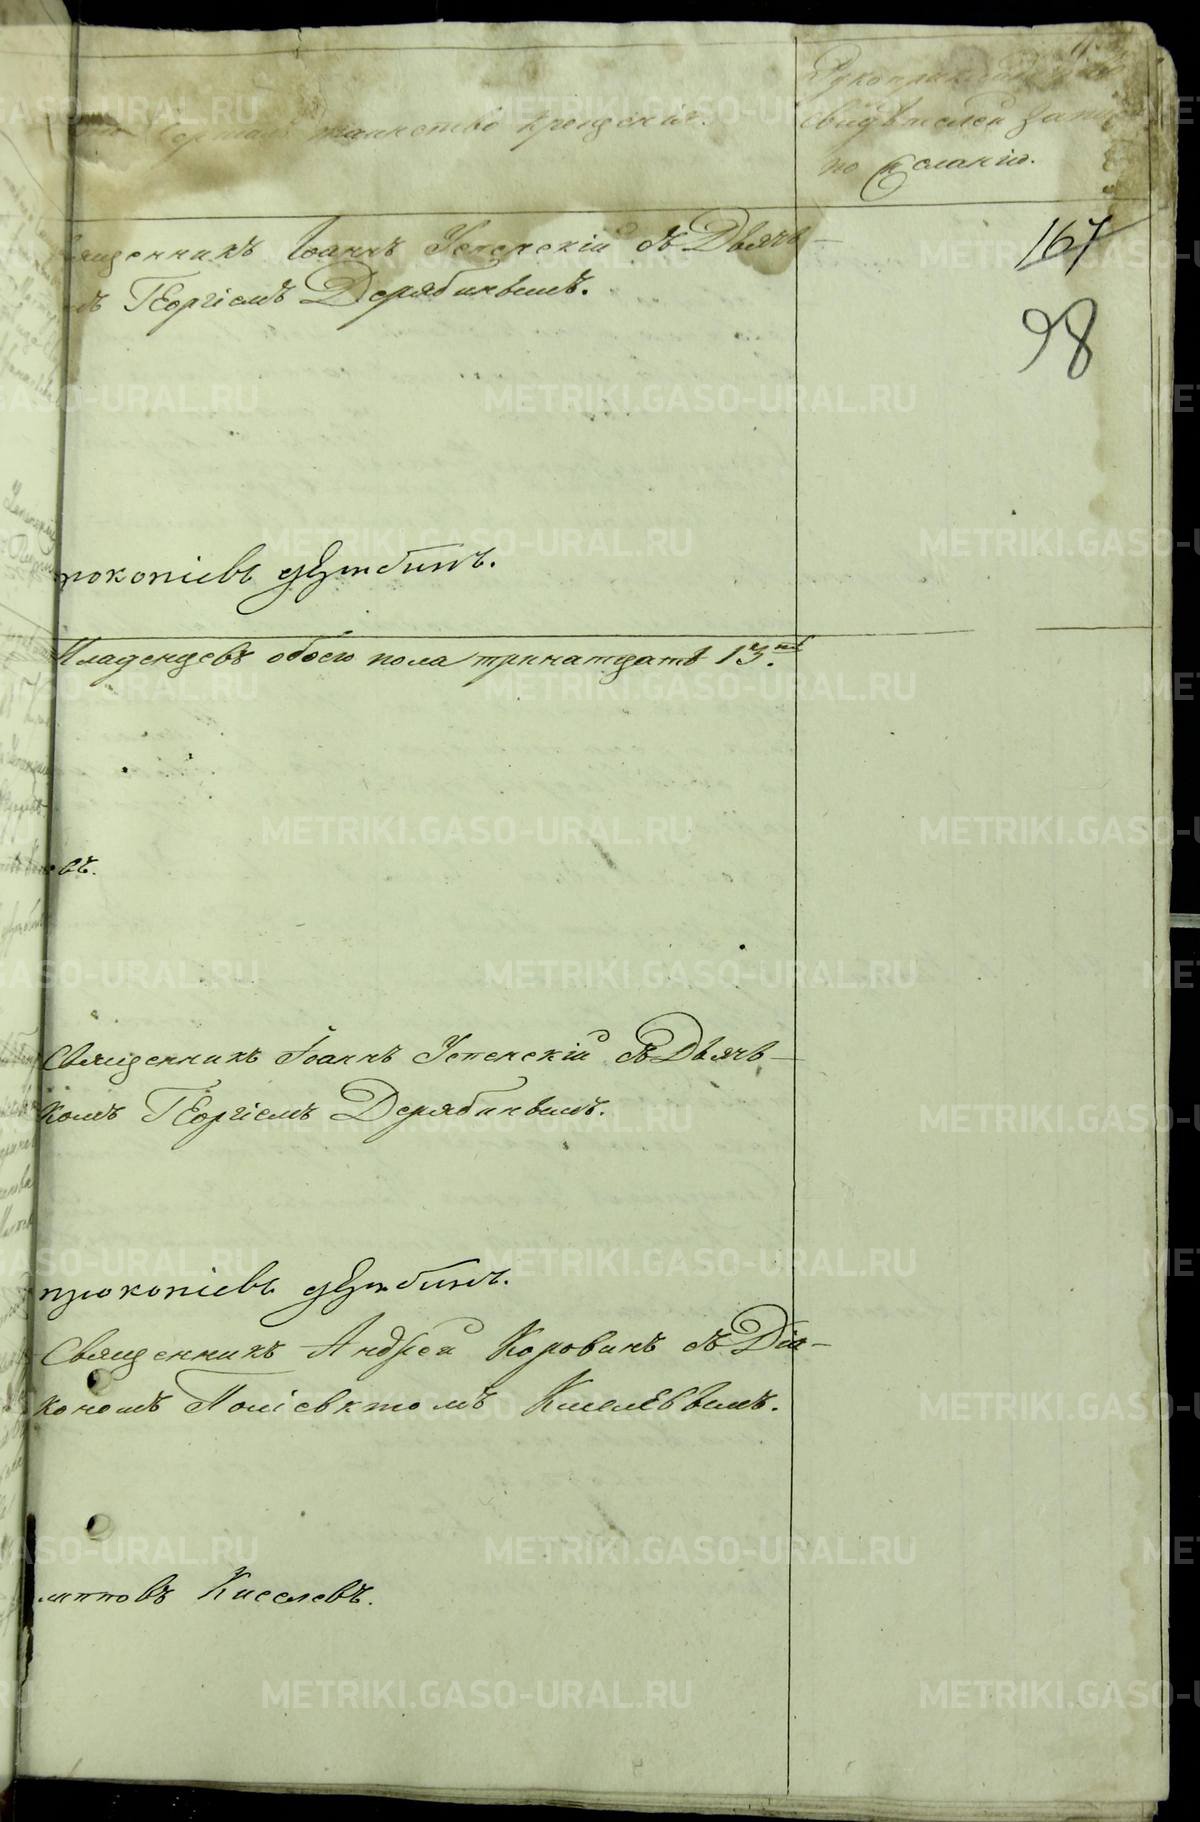 таинство крещенія.
Рукоприкладство
свидѣтелей
по желанію.
167
98
Священникъ Іоаннъ Успенскій съ Дьяч-
мъ Георгіемъ Дерябинымъ.
прокопіевъ
Младенцевъ обоего пола тринатцать 13.
въ.
Священникъ Іоаннъ Успенскій съ Дьяч-
комъ Георгіемъ Дерябинымъ.
прокопіевъ
Священникъ Андрей Коровинъ съ Діа-
кономъ Поліевктомъ Киселевымъ.
Киселевъ.
METRIKI.GASO-URAL.RU